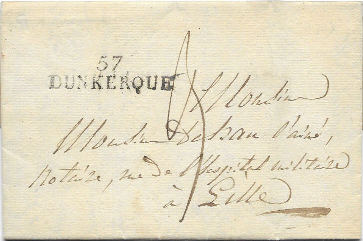 57
DUNKERQUE
Monsieur
Monsieur l'aîné,
Notaire, rue de l'hopital militaire
à Lille